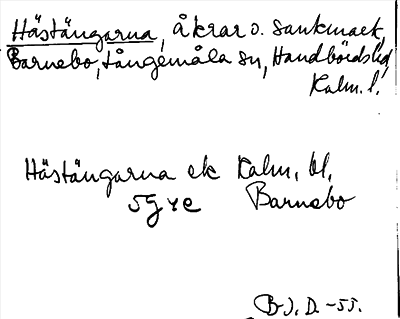 Hästängarna, åkrar o. sankmark,
Barnebo, Långemåla sn, Handbördshd,
Kalm. l.
Hästängarna ek Kalm. bl.
5g re Barnebo
B J. D. -55.